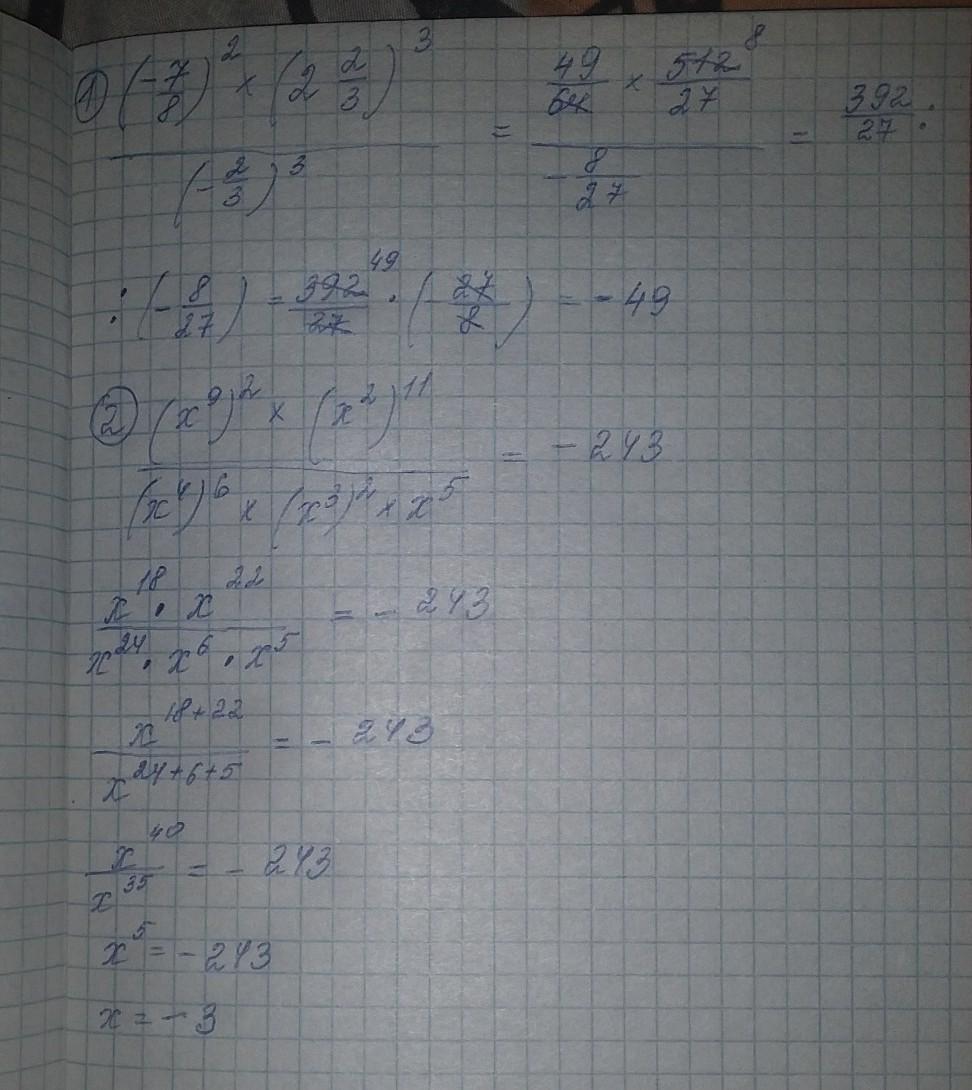 ① (-7/8)² × (2 2/3)³ / (-2/3)³ = 49/64 × 512/27 8 / -8/27 = 392/27 :
: (-8/27) = 392/27 49 · (-27/8) = -49
② (x⁹)² × (x²)¹¹ / (x⁴)⁶ × (x³)² × x⁵ = -243
x¹⁸ · x²² / x²⁴ · x⁶ · x⁵ = -243
x¹⁸⁺²² / x²⁴⁺⁶⁺⁵ = -243
x⁴⁰ / x³⁵ = -243
x⁵ = -243
x = -3